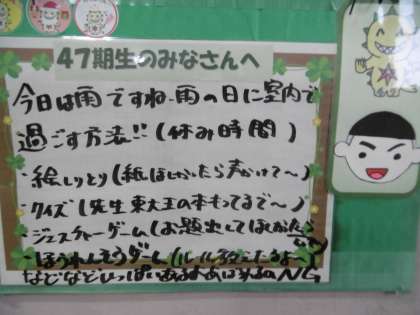 47期生のみなさんへ
今日は雨ですね。雨の日に室内で
過ごす方法!!(休み時間)
・絵しりとり(紙ほしかったら声かけて〜)
・クイズ(先生東大王の本もってるで〜)
・ジェスチャーゲーム(お題出してほしかったら
・ほうれんそうゲーム(ルール教えたるよ〜)
などなどいっぱいあるよあばれるのNG